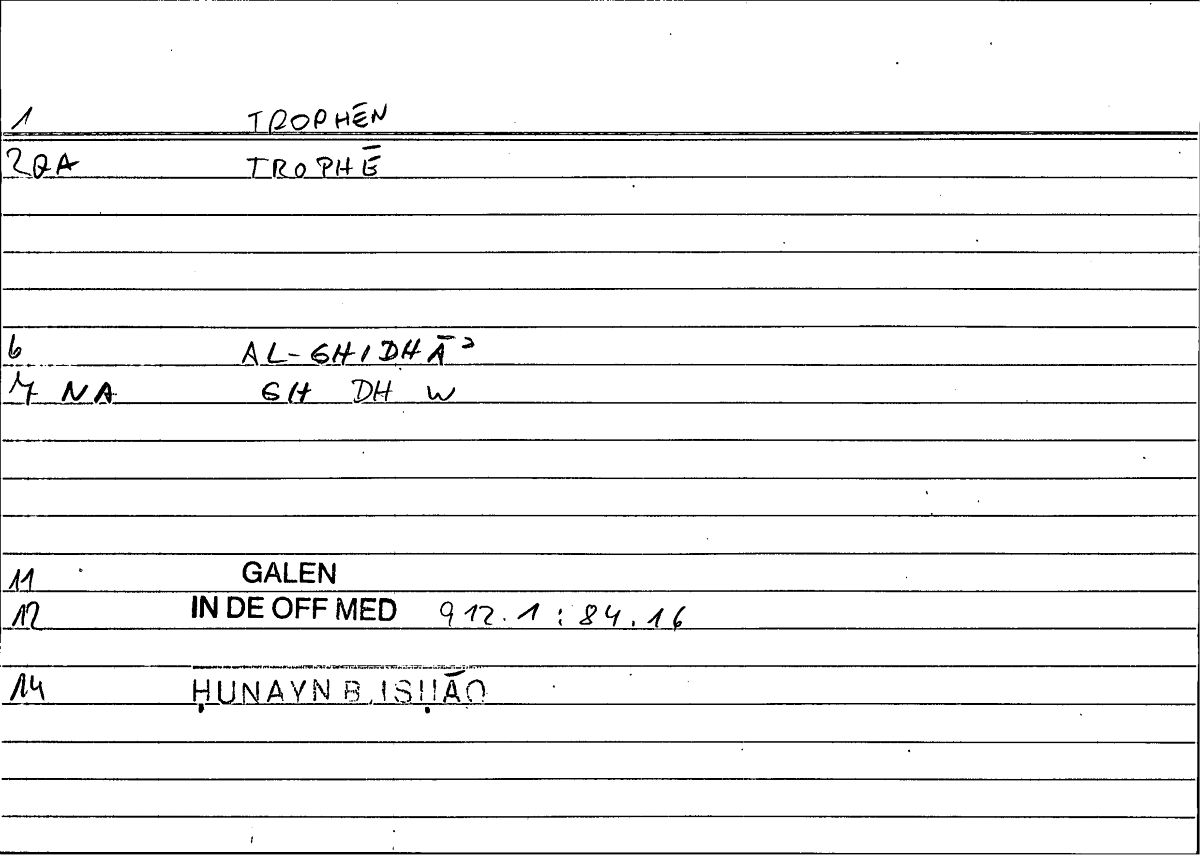 1 TROPHĒN
2QA TROPHĒ
6 AL-GHIDHĀʾ
7 NA GH DH W
11 GALEN
12 IN DE OFF MED 912.1 : 84.16
14 ḤUNAYN B. ISḤĀQ